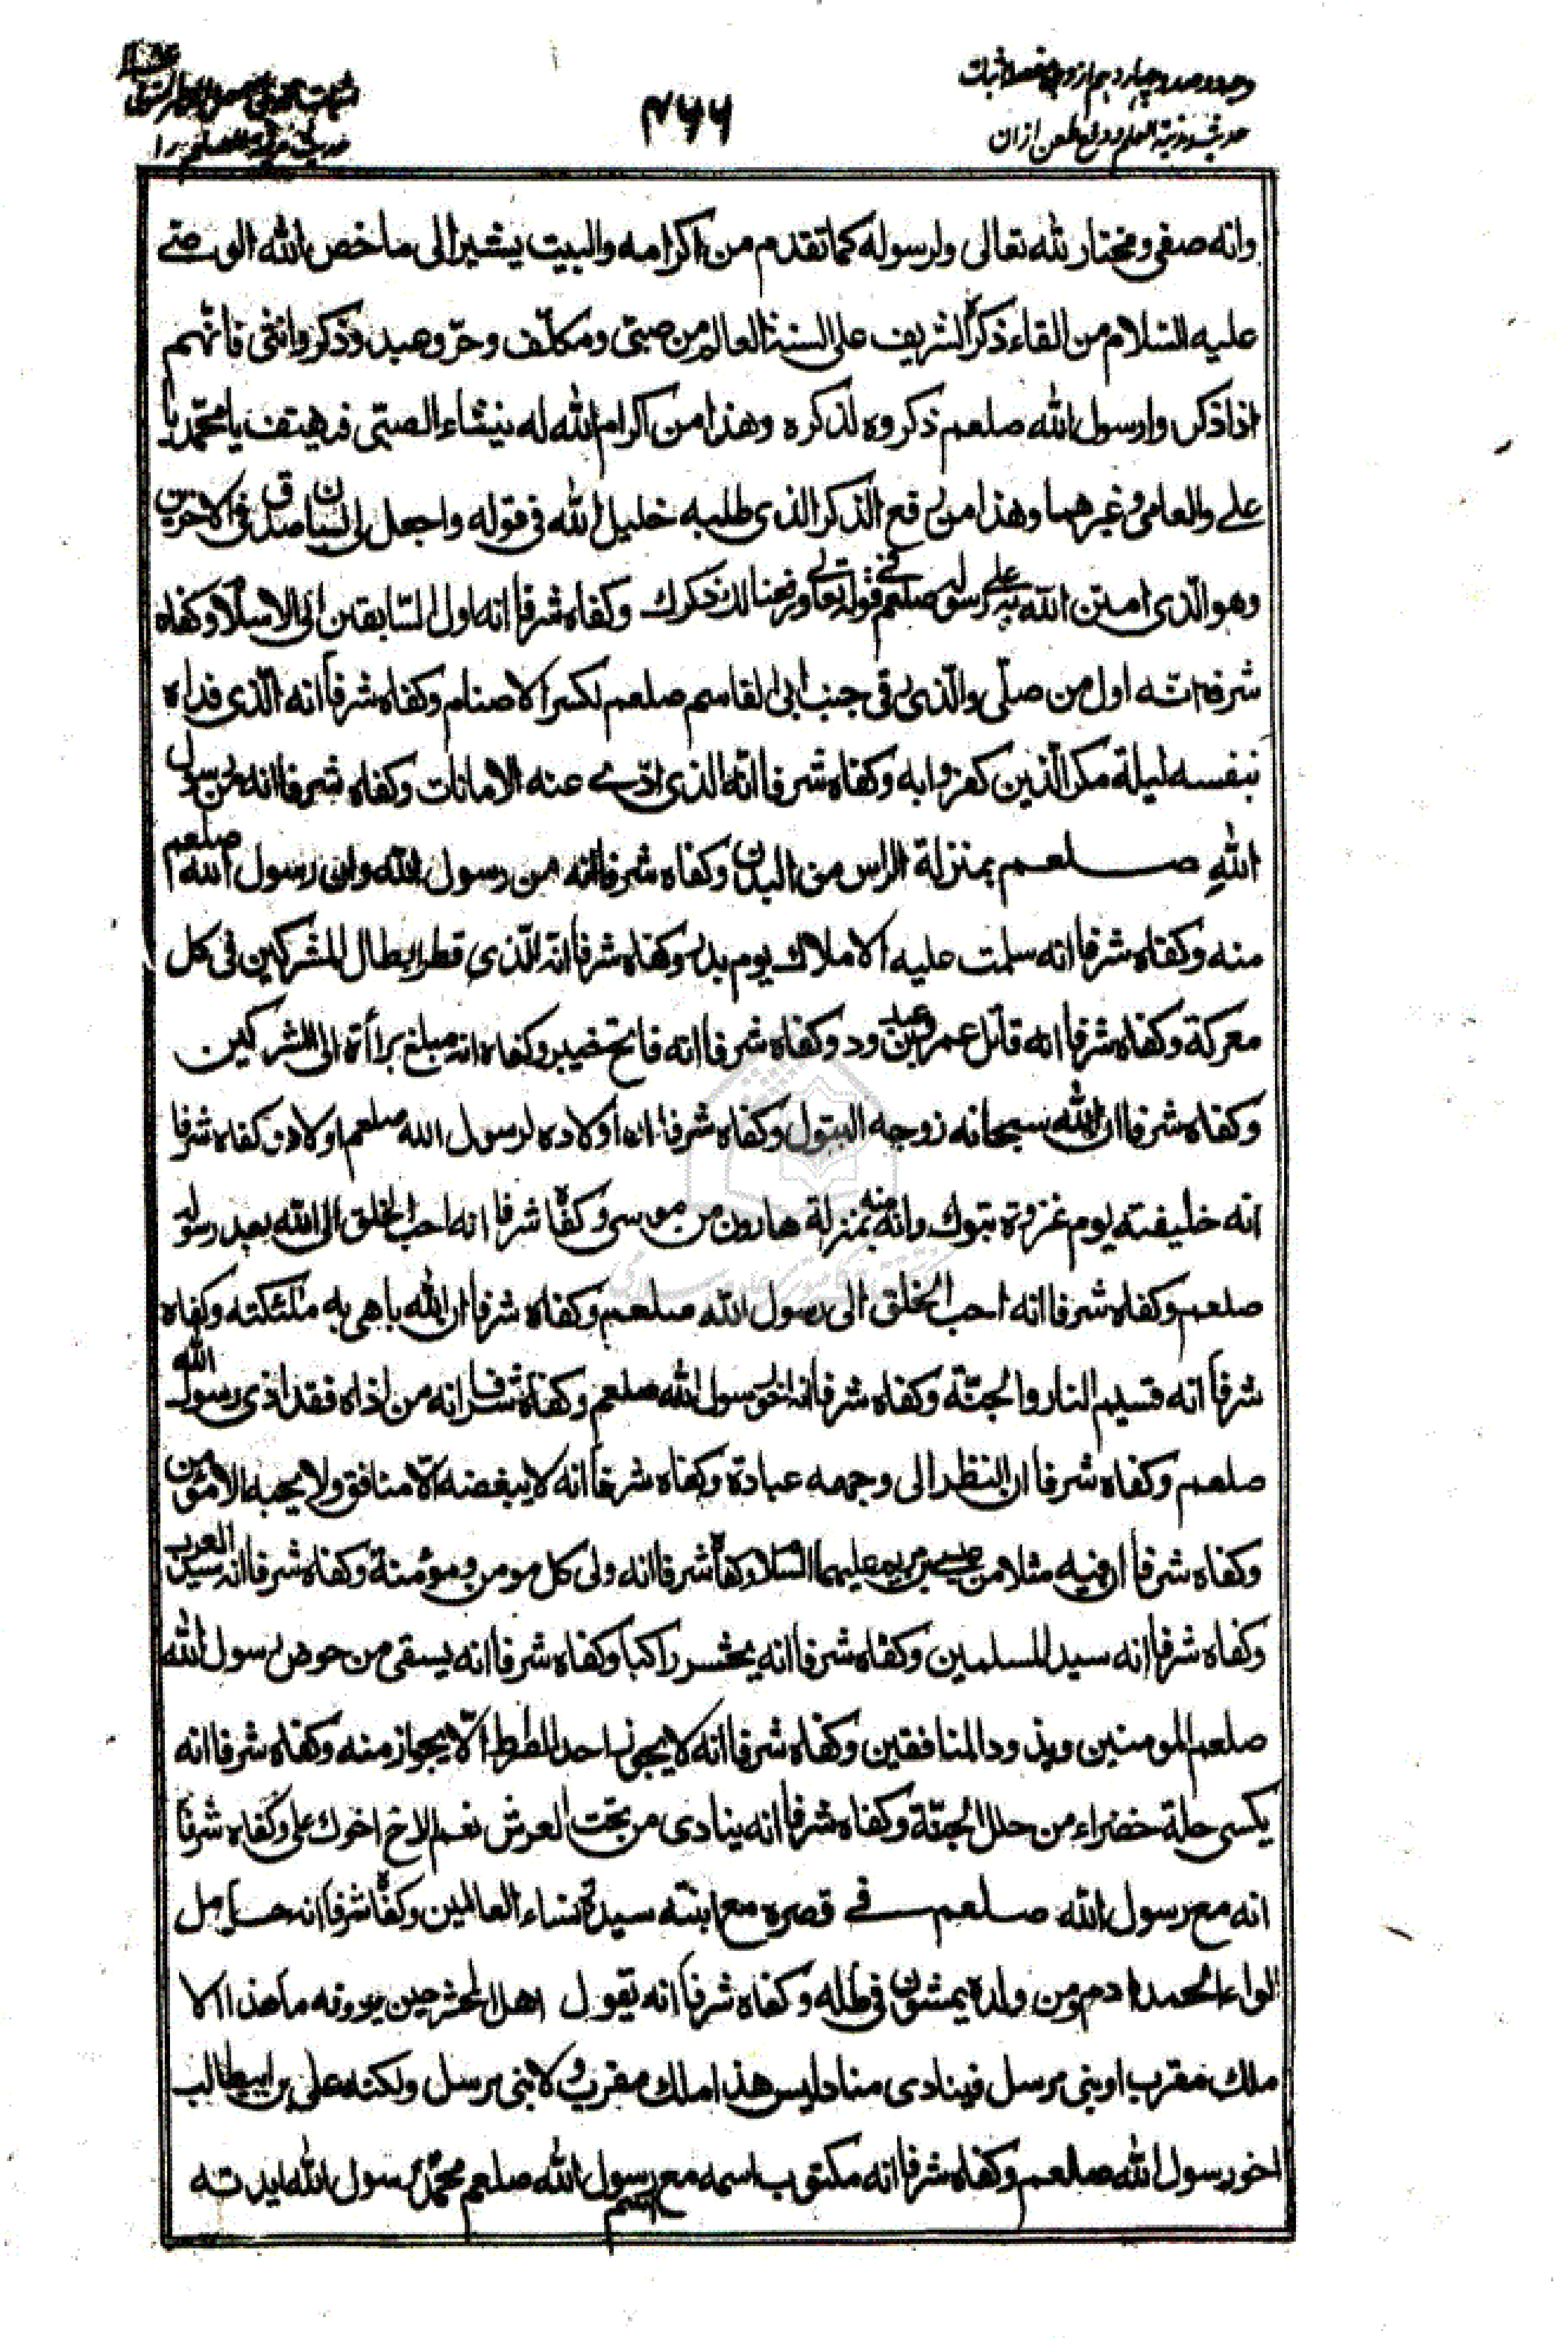 وجه دو صد و چهاردهم از وجوه اثبات
حدیث مدینة العلم و دفع طعن ازان
۴۶۶
وانه صفى ومختار لله تعالى ولرسوله كما تقدم من اكرامه والبيت يشير الى ما خص الله الوصى
عليه السلام من القاء ذكره الشريف على السنة العالم من صبىّ ومكلّف وحرّ وعبد وذكر وانثى فانّهم
اذا ذكروا رسول الله صلعم ذكروه لذكره وهذا من اكرام الله له ينشاء الصبىّ فيهتف يا محمّد يا
على والعامى وغيرهما وهذا من رفع الذكر الذى طلبه خليل الله فى قوله واجعل لى لسان صدق فى الاخرين
وهو الّذى امتن الله به على رسوله صلعم فى قوله تعالى ورفعنا لك ذكرك وكفاه شرفا انه اول السّابقين الى الاسلام وكفاه
شرفا انّه اول من صلّى والّذى رقى جنب ابى القاسم صلعم لكسر الاصنام وكفاه شرفاً انه الّذى فداه
بنفسه ليلة مكر الّذين كفروا به وكفاه شرفا انّه الذى ادّى عنه الامانات وكفاه شرفا انه من رسول
الله صلعم بمنزلة الراس من البدن وكفاه شرفا انه من رسول الله وان رسول الله صلعم
منه وكفاه شرفا انه سلمت عليه الاملاك يوم بدر وكفاه شرفا انّه الّذى قطر ابطال المشركين فى كل
معركة وكفاه شرفا انه قاتل عمرو بن عبد ود وكفاه شرفا انه فاتح خيبر وكفاه انه مبلغ براءة الى المشركين
وكفاه شرفا ان الله سبحانه زوجه البتول وكفاه شرفا انه اولاده لرسول الله صلعم اولاد وكفاه شرفا
انه خليفته يوم غزوة تبوك وانه منه بمنزلة هارون من موسى وكفاه شرفا انه احب الخلق الى الله بعد رسوله
صلعم وكفاه شرفا انه احب الخلق الى رسول الله صلعم وكفاه شرفا ان الله باهى به ملئكته وكفاه
شرفاً انه قسيم النار والجنّة وكفاه شرفا انه اخو رسول الله صلعم وكفاه شرفا انه من اذاه فقد اذى رسول الله
صلعم وكفاه شرفا ان النظر الى وجهه عبادة وكفاه شرفاً انه لا يبغضه الّا منافق ولا يحبه الا مؤمن
وكفاه شرفا ان فيه مثلا من عيسى بن مريم عليهما السّلام وكفاه شرفا انه ولى كل مومن ومؤمنة وكفاه شرفا انه سيد العرب
وكفاه شرفا انه سيد المسلمين وكفاه شرفا انه يحشر راكبا وكفاه شرفا انه يسقى من حوض رسول الله
صلعم المومنين ويذود المنافقين وكفاه شرفا انه لا يجوز احد الصراط الّا بجواز منه وكفاه شرفا انه
يكسى حلة خضراء من حلل الجنّة وكفاه شرفا انه ينادى من تحت العرش نعم الاخ اخوك على وكفاه شرفا
انه مع رسول الله صلعم فى قصره مع ابنته سيدة نساء العالمين وكفاه شرفا انه حامل
لواء الحمد ادم ومن ولده يمشون فى ظله وكفاه شرفاً انه تقول اهل المحشر حين يرونه ما هذا الا
ملك مقرب او نبى مرسل فينادى مناد ليس هذا ملك مقرب ولا نبى مرسل ولكنه على بن ابيطالب
اخو رسول الله صلعم وكفاه شرفا انه مكتوب اسمه مع اسم رسول الله صلعم محمّد رسول الله ايدته